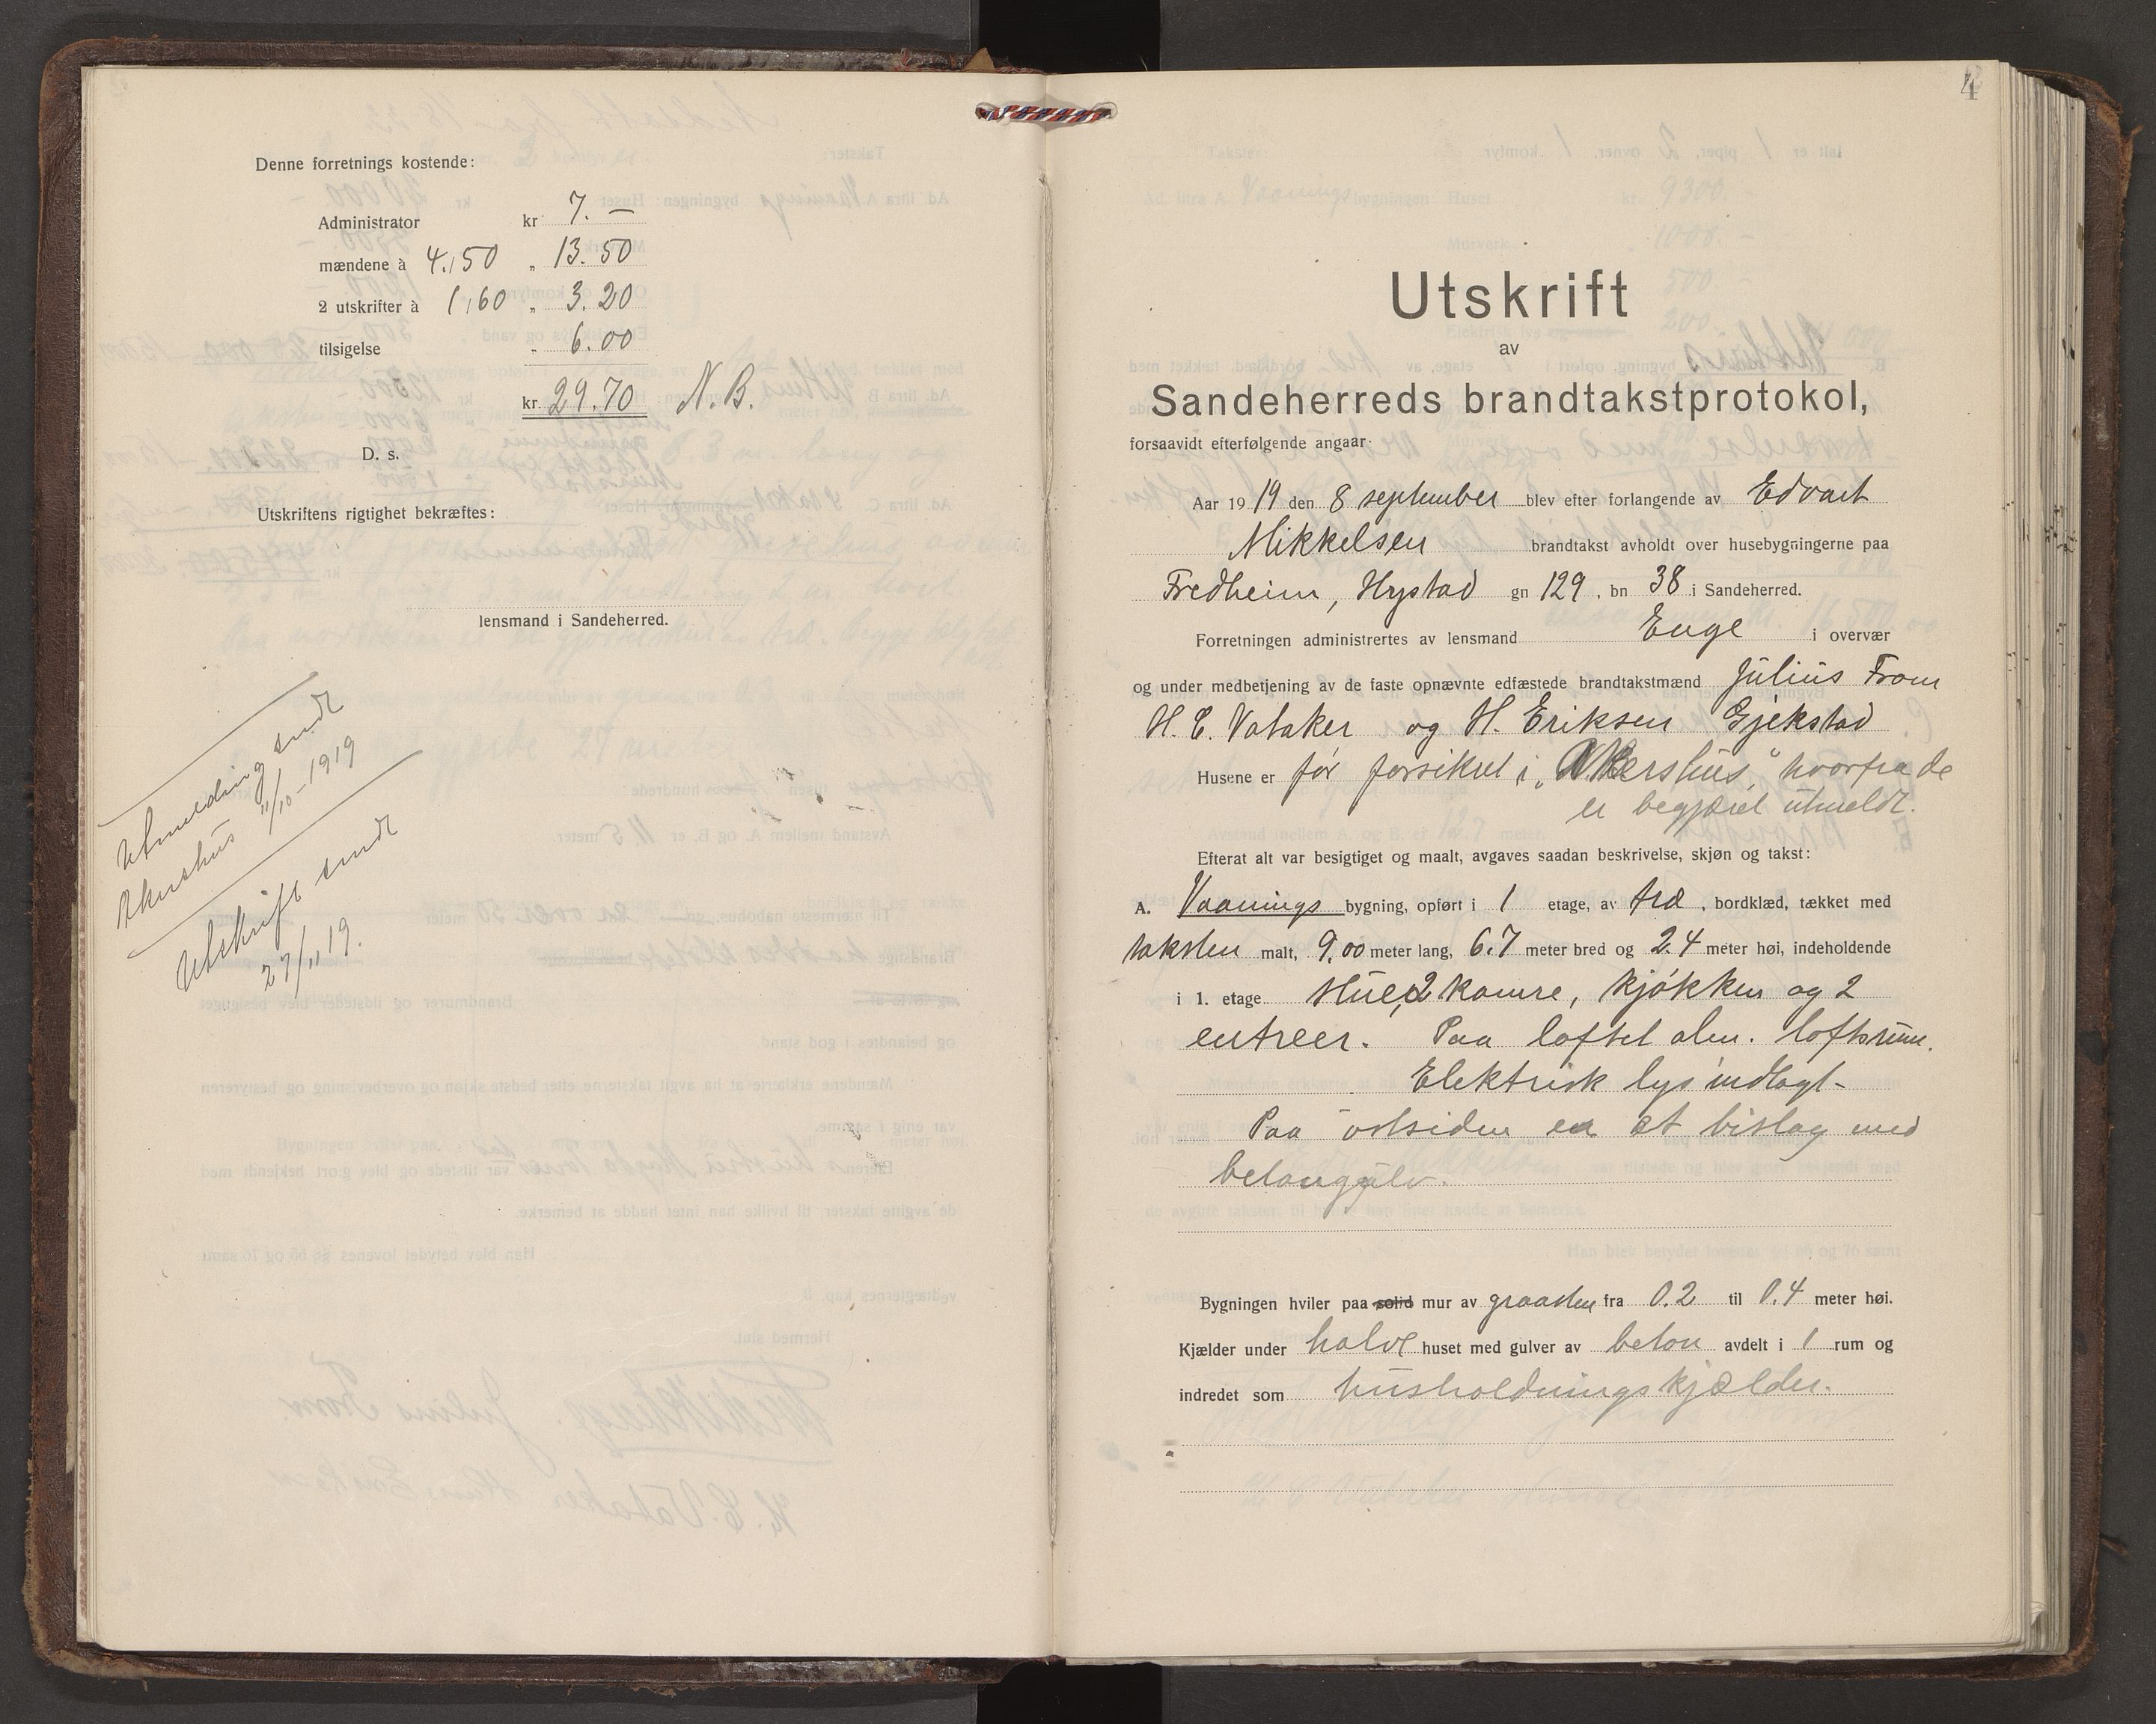 Denne forretnings kostende:
Administrator kr 7. —
mændene à 4,50 „ 13.50
2 utskrifter à 1,60 „ 3.20
tilsigelse „ 6.00
kr. 29.70 N.B.
D. s.
Utskriftens rigtighet bekræftes:
lensmand i Sandeherred.
Utmelding sendt
Akershus 11/10-1919
Utskrift sendt
27/11 19.
4
Utskrift
av
Sandeherreds brandtakstprotokol,
forsaavidt efterfølgende angaar:
Aar 1919 den 8 september blev efter forlangende av Edvart
Mikkelsen brandtakst avholdt over husebygningerne paa
Fredheim, Hystad gn 129, bn 38 i Sandeherred.
Forretningen administrertes av lensmand Enge i overvær
og under medbetjening av de faste opnævnte edfæstede brandtakstmænd Julius From
H. E. Vataker og H. Eriksen Gjekstad
Husene er før forsikret i „Akershus" hvorfra de
er begjæret utmeldt.
Efterat alt var besigtiget og maalt, avgaves saadan beskrivelse, skjøn og takst:
A. Vaanings bygning, opført i 1 etage, av træ, bordklæd, tækket med
taksten malt, 9,00 meter lang, 6.7 meter bred og 2.4 meter høi, indeholdende
i 1. etage stue, 2 kamre, kjøkken og 2
entreer. Paa loftet alm. loftsrum.
Elektrisk lys indlagt-
Paa østsiden er et bislag med
betongulv.
Bygningen hviler paa solid mur av graasten fra 0.2 til 0.4 meter høi.
Kjælder under halve huset med gulver av beton avdelt i 1 rum og
indredet som husholdningskjælder.